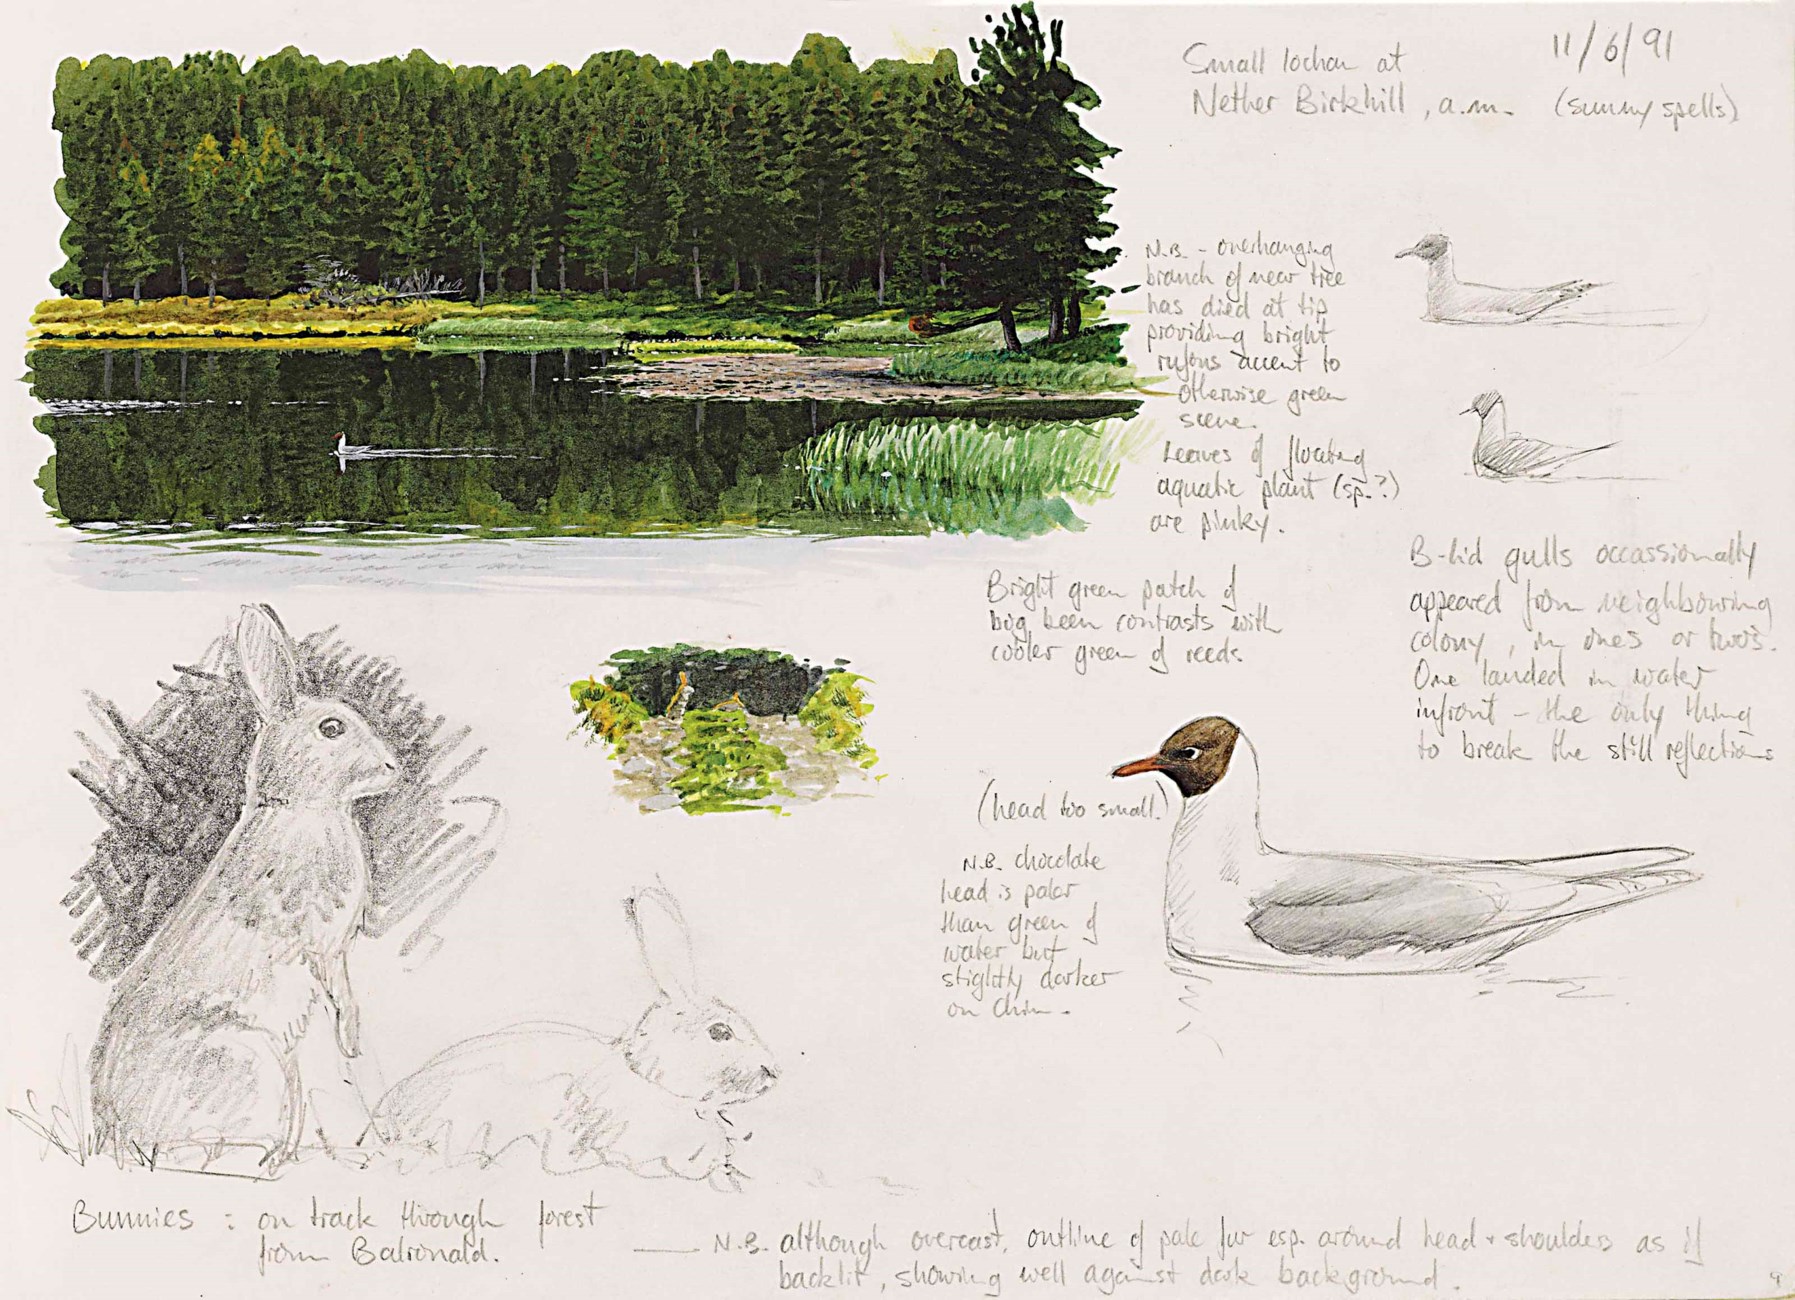 Small lochan at
Nether Birkhill, a.m. (sunny spells)
11/6/91
N.B. - overhanging
branch of near tree
has died at tip
providing bright
rufous accent to
otherwise green
scene.
Leaves of floating
aquatic plant (sp.?)
are pinky.
Bright green patch of
bog been contrasts with
cooler green of reeds
B-hd gulls occassionally
appeared from neighbouring
colony, in ones or twos.
One landed in water
infront - the only thing
to break the still reflections
(head too small.)
N.B. chocolate
head is paler
than green of
water but
slightly darker
on chin.
Bunnies : on track through forest
from Balronald.
N.B. although overcast, outline of pale fur esp. around head + shoulders as if
backlit, showing well against dark background.
9